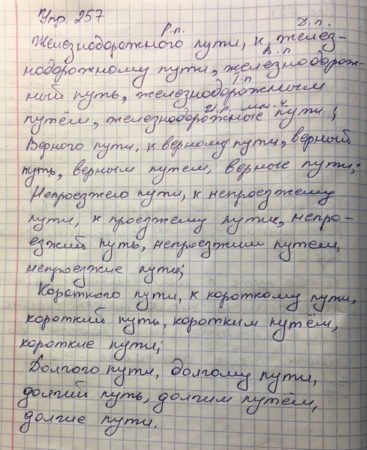 Упр. 257
Р.п. Д.п.
Железнодорожного пути, к желез-
В.п.
нодорожному пути, железнодорож-
Т.п.
ный путь, железнодорожным
И.п. мн.ч.
путём, железнодорожные пути;
Верного пути, к верному пути, верный
путь, верным путем, верные пути;
Непроезжего пути, к непроезжему
пути, к проезжему пути, непро-
езжий путь, непроезжим путем,
непроезжие пути;
Короткого пути, к короткому пути,
короткий путь, коротким путём,
короткие пути;
Долгого пути, долгому пути,
долгий путь, долгим путём,
долгие пути.